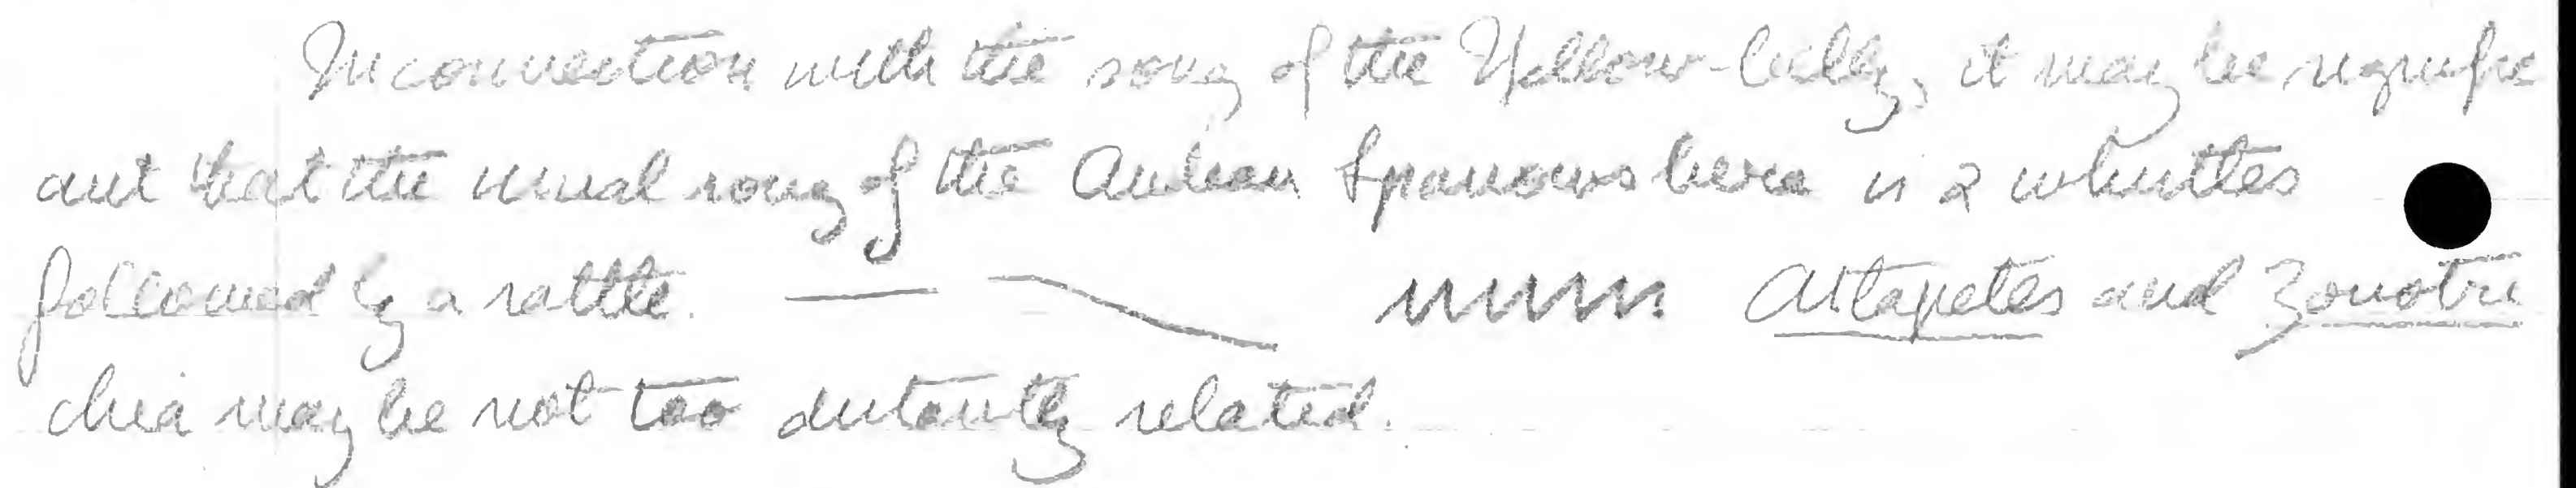 In connection with the song of the Yellow-belly, it may be signific
ant that the usual song of the Andean Sparrows here is 2 whistles
followed by a rattle. Atlapetes and Zonotri
chia may be not too distantly related.